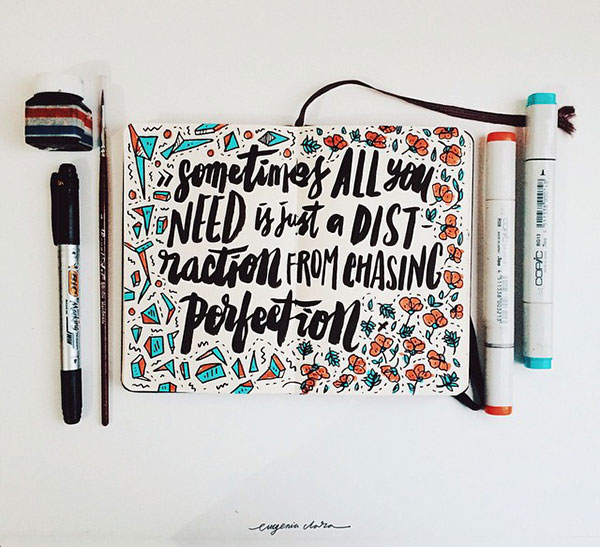 "sometimes ALL you
NEED is just a DIST-
raction FROM CHASING
perfection
COPIC
eugenia clara